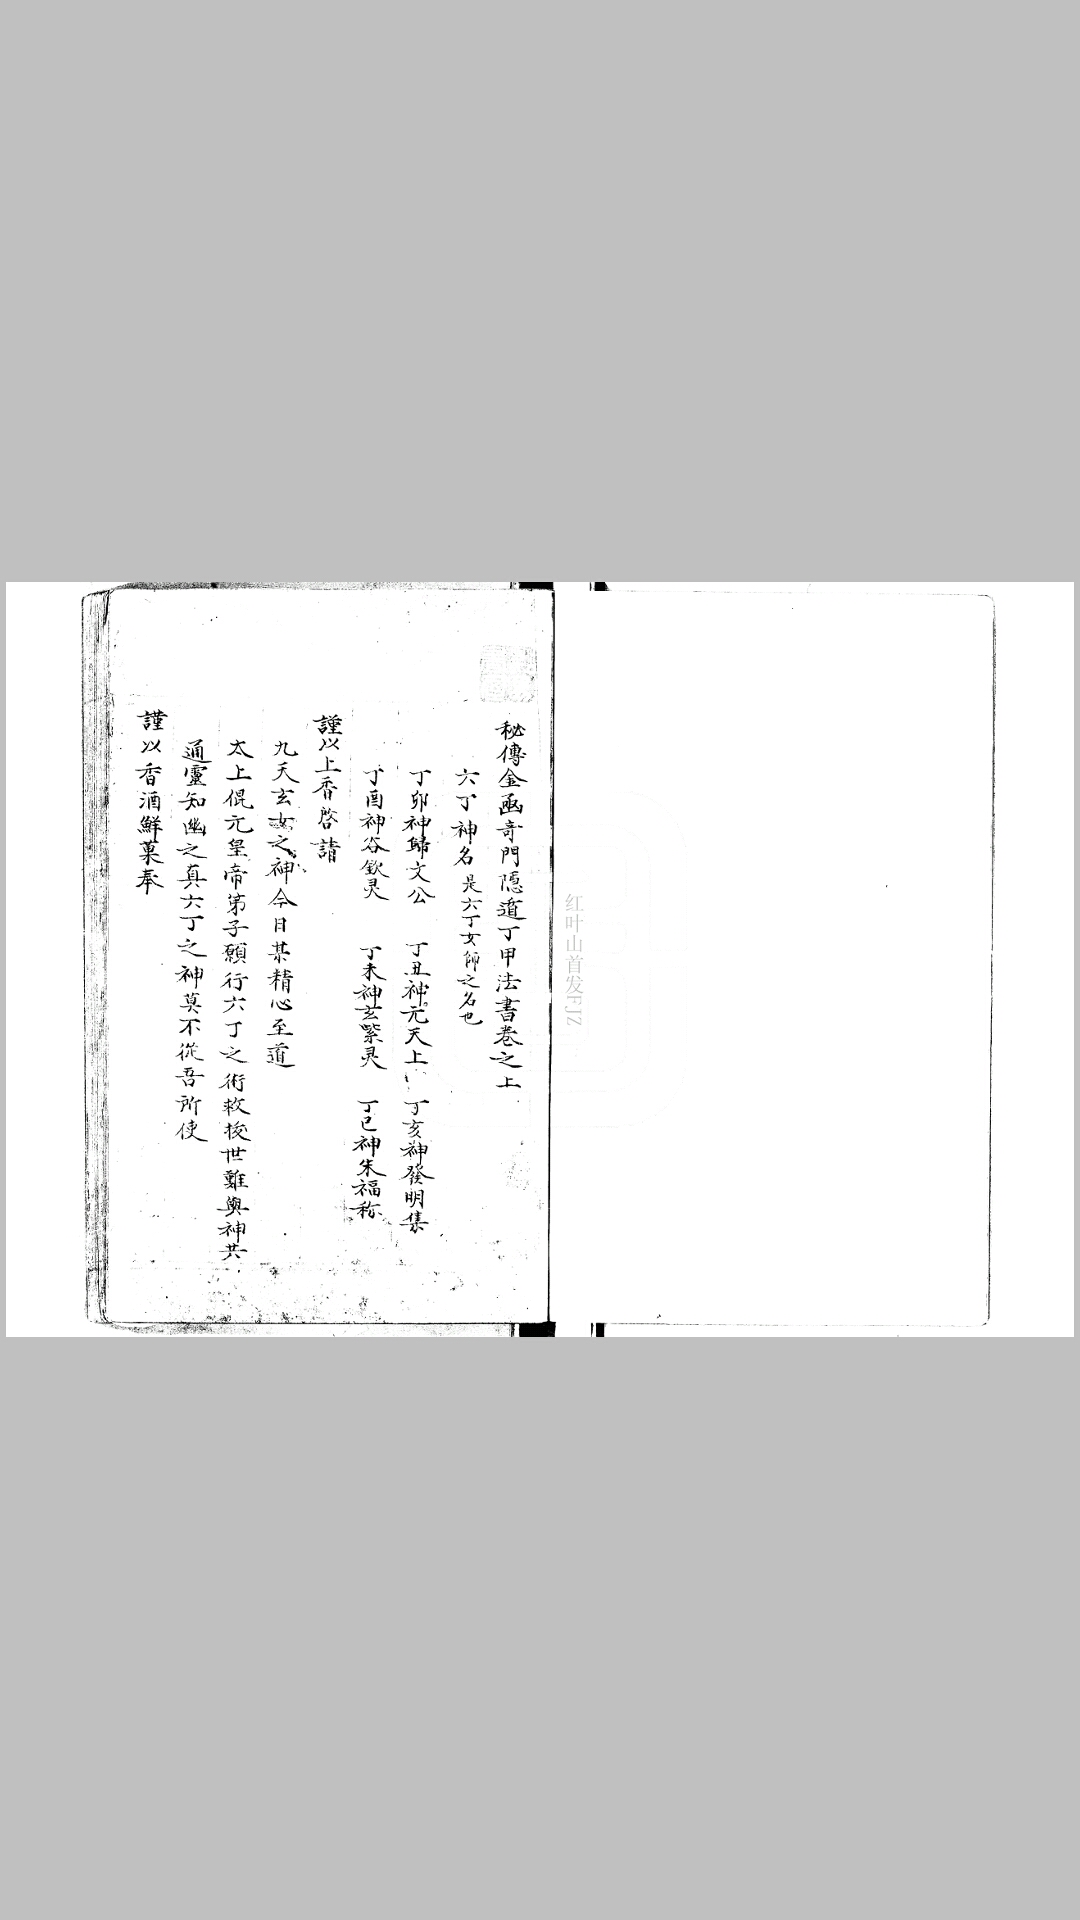 秘傳金函竒門隱遁丁甲法書卷之上
六丁神名 是六丁女師之名也
丁卯神歸文公 丁丑神元天上 丁亥神發明集
丁酉神谷欽灵 丁未神玄紫灵 丁巳神朱福称
謹以上香啓請
九天玄女之神今日某精心至道
太上傀元皇帝苐子願行六丁之術救拔世難與神共
通靈知幽之真六丁之神莫不從吾所使
謹以香酒鮮菓奉
红叶山首发FJZ